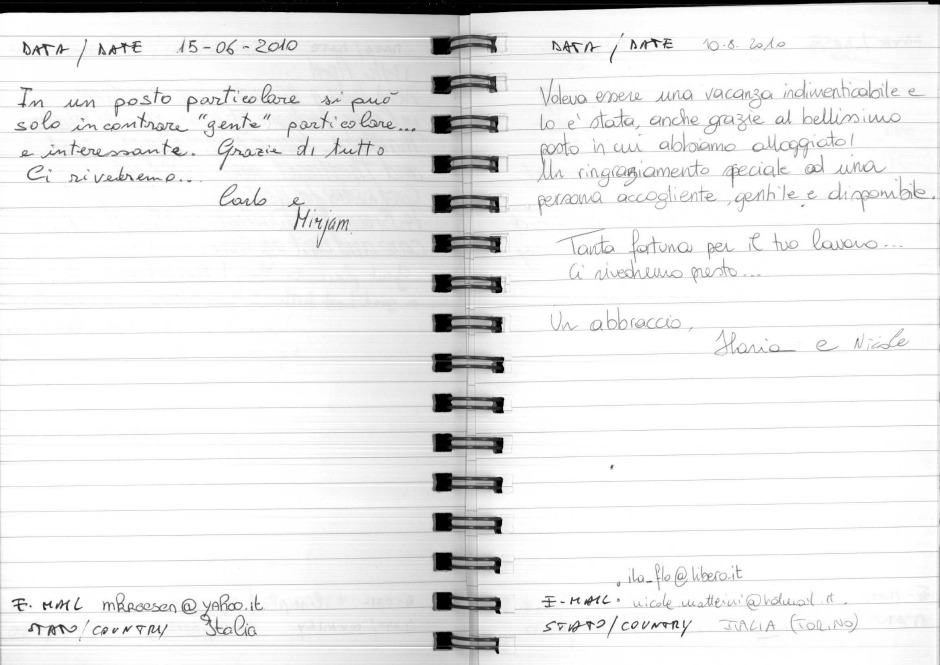 DATA / DATE 15-06-2010
In un posto particolare si può
solo incontrare "gente" particolare...
e interessante. Grazie di tutto
Ci rivedremo...
Carlo e
Mirjam
DATA / DATE 10.8.2010
Voleva essere una vacanza indimenticabile e
lo e' stata, anche grazie al bellissimo
posto in cui abbiamo alloggiato!
Un ringraziamento speciale ad una
persona accogliente, gentile e disponibile.
Tanta fortuna per il tuo lavoro...
Ci rivedremo presto...
Un abbraccio,
Ilaria e Nicole
E-MAIL @yahoo.it
STATO/COUNTRY Italia
ila_flo@libero.it
E-MAIL.
STATO/COUNTRY ITALIA (TORINO)